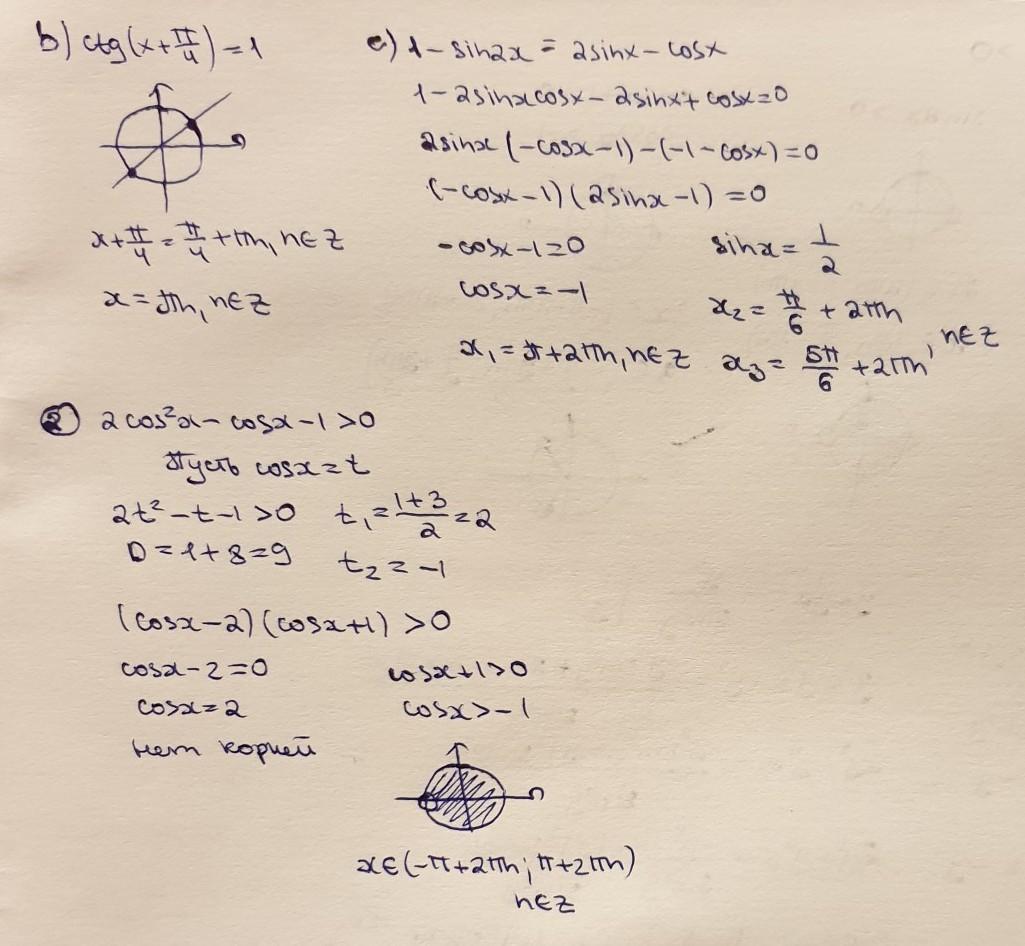 b) ctg(x+π/4)=1
x+π/4=π/4+πn, n∈Z
x=πn, n∈Z
c) 1-sin2x=2sinx-cosx
1-2sinxcosx-2sinx+cosx=0
2sinx(-cosx-1)-(-1-cosx)=0
(-cosx-1)(2sinx-1)=0
-cosx-1=0
cosx=-1
x₁=π+2πn, n∈Z
sinx=1/2
x₂=π/6+2πn
x₃=5π/6+2πn, n∈Z
② 2cos²x-cosx-1>0
Пусть cosx=t
2t²-t-1>0 t₁=(1+3)/2=2
D=1+8=9 t₂=-1
(cosx-2)(cosx+1)>0
cosx-2=0
cosx=2
нет корней
cosx+1>0
cosx>-1
x∈(-π+2πn; π+2πn)
n∈Z